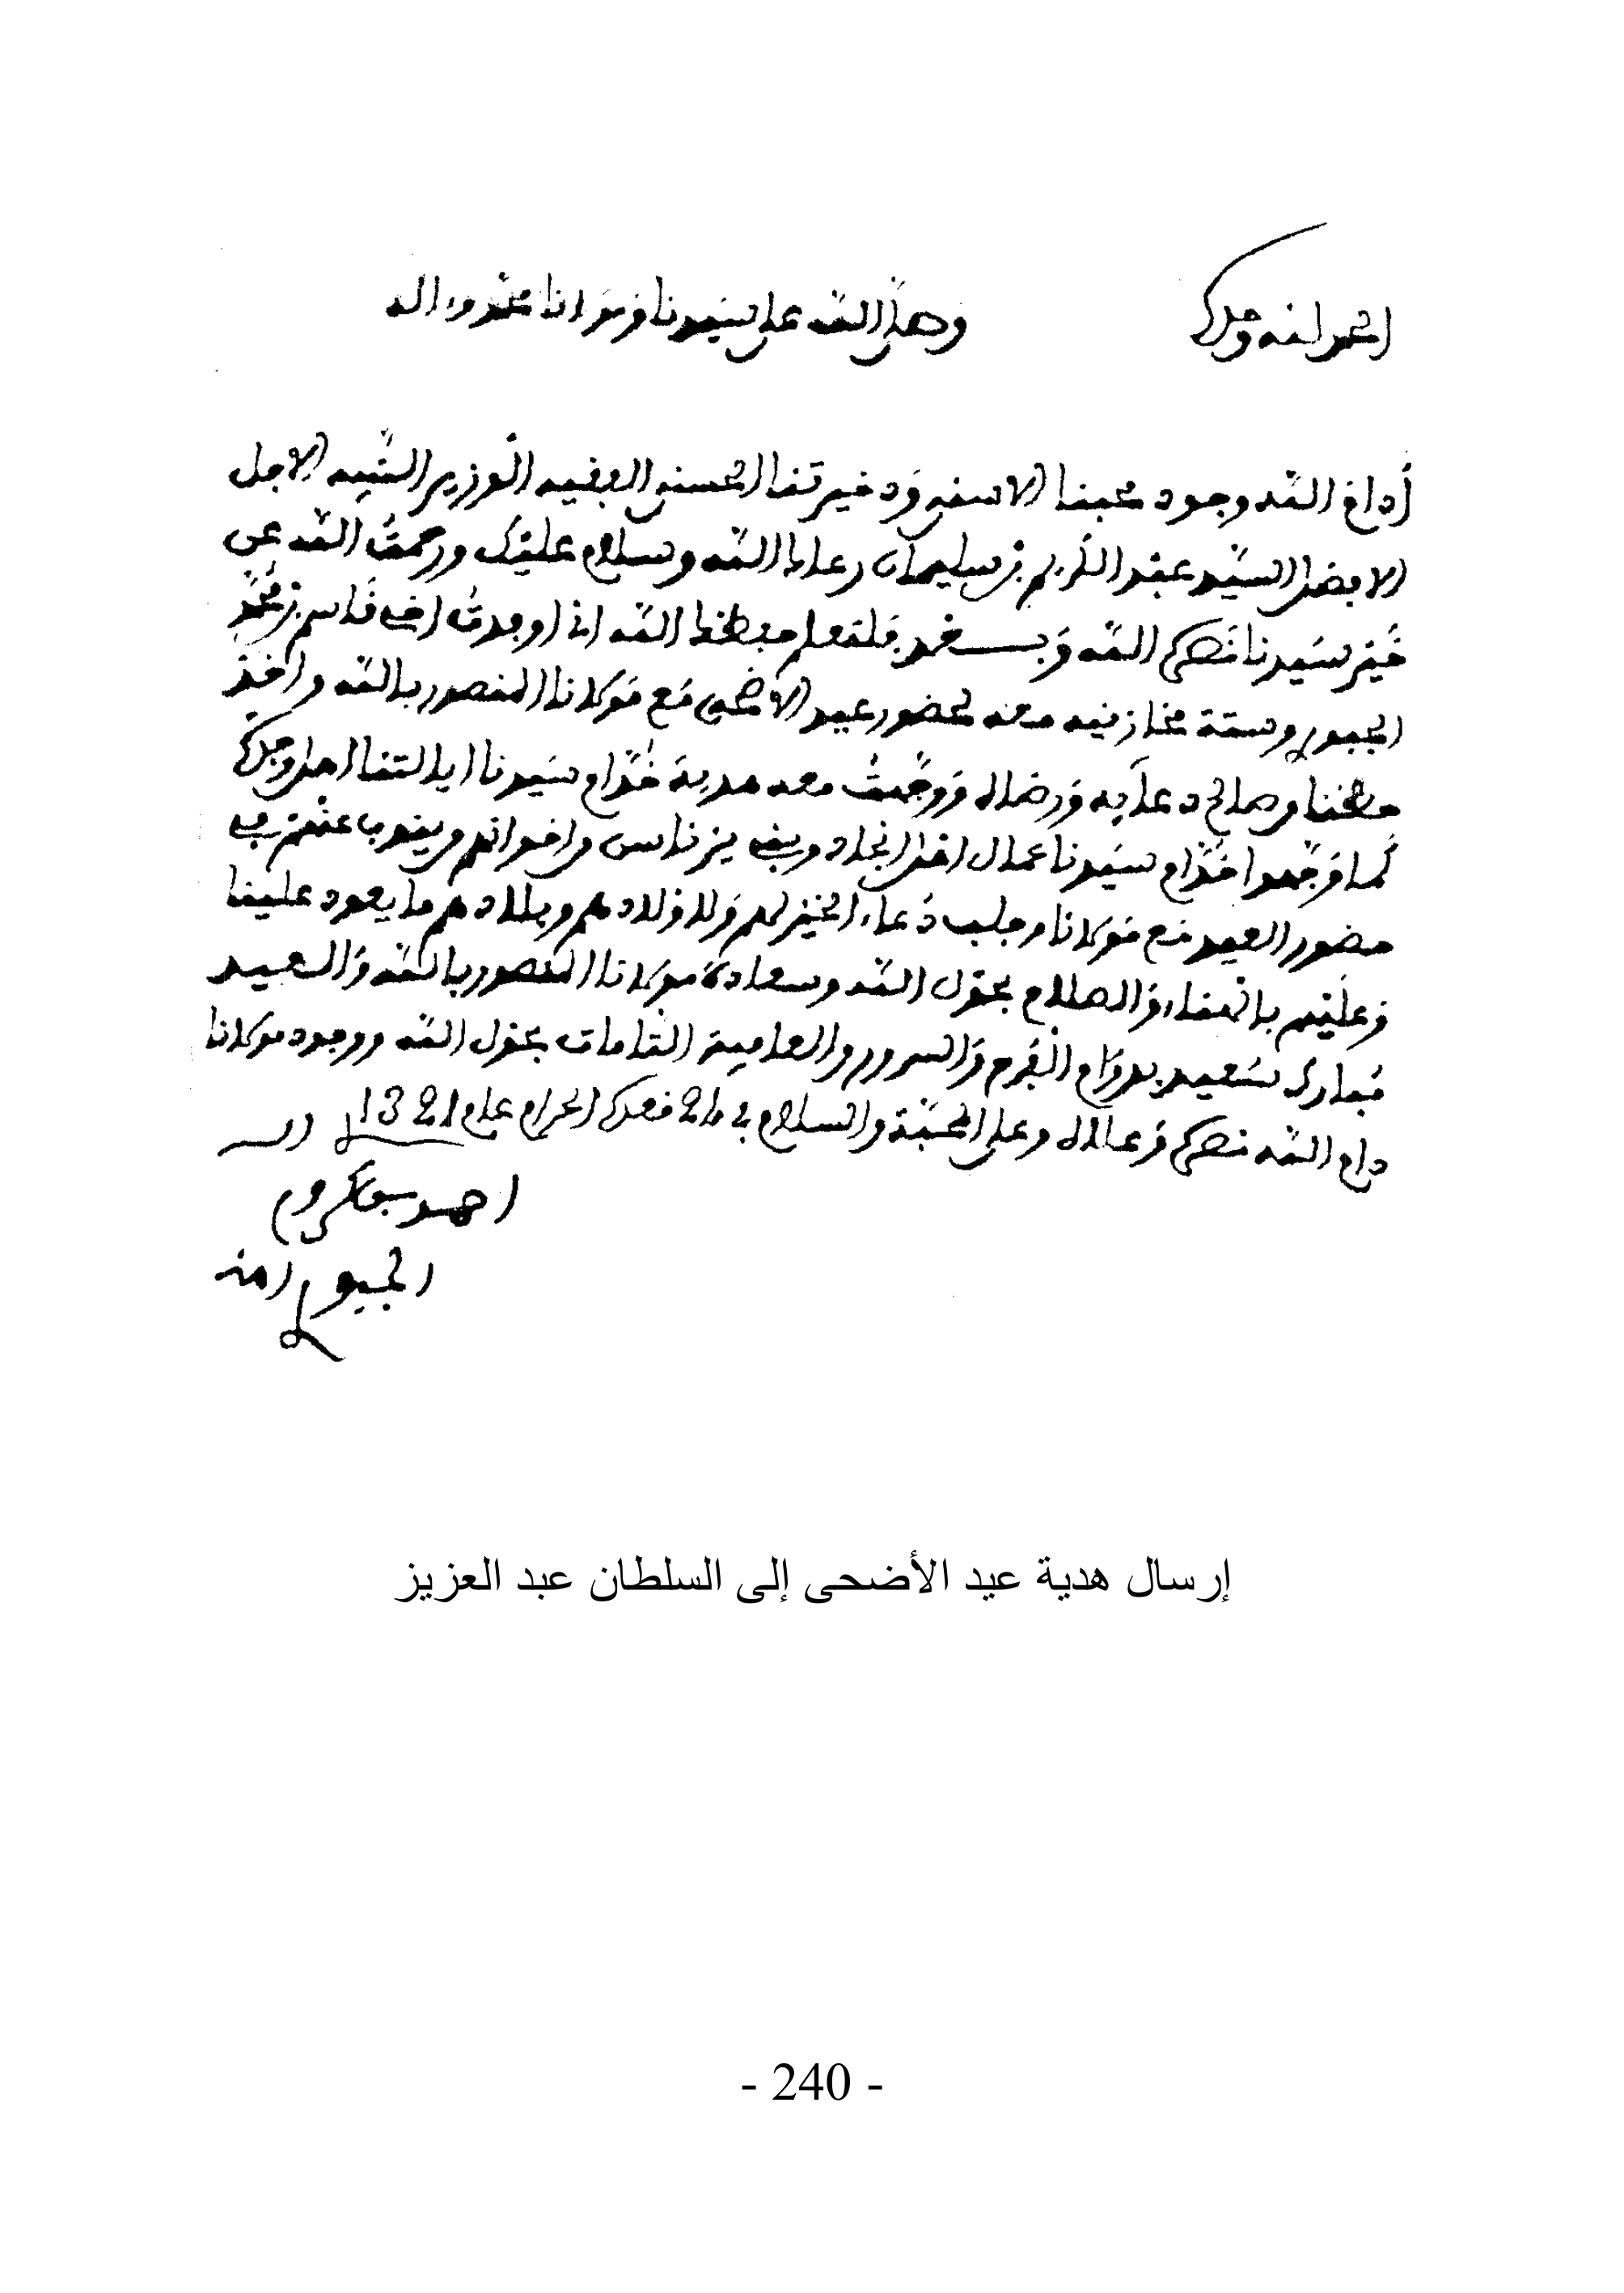 الحمد لله وحده
وصلى الله على سيدنا ومولانا محمد واله
أدام الله وجود محبنا الاسنى وذخيرتنا الحسنى الفقيه الوزير النبيه الاجل
الافضل السيد عبد الكريم بن سليمان رعاك الله وسلام عليك ورحمت الله عن
خير سيدنا نصره الله وبعد فلتعلم حفظك الله اننا وجهت اخي قاسم بن محمد
الجبوري وستة مخازنيه معه لحضور عيد الاضحى مع مولانا المنصور بالله واخذ
حظنا من صالح دعايه ورضاه ووجهت معه هدية خدام سيدنا ايالتنا احلاف وجدة
كما وجهوا خدام سيدنا عمال اهل انجاد وبني يزناسن واخوانهم من ينوب عنهم في
حضور العيد مع مولانا وجلب دعاء الخير لهم ولاولادهم وبلادهم ما يعود علينا
وعليهم بالهناء والصلاح بحول الله وسعادة مولانا المنصور بالله والعيد
مبارك سعيد بدوام الفرح والسرور والعافية التامات بحول الله ووجود مولانا
دام الله نصره وعلاه وعلى المحبة والسلام في 21 قعدة الحرام عام 1321
احمد بنكروم
الجبوري امنه
إرسال هدية عيد الأضحى إلى السلطان عبد العزيز
- 240 -